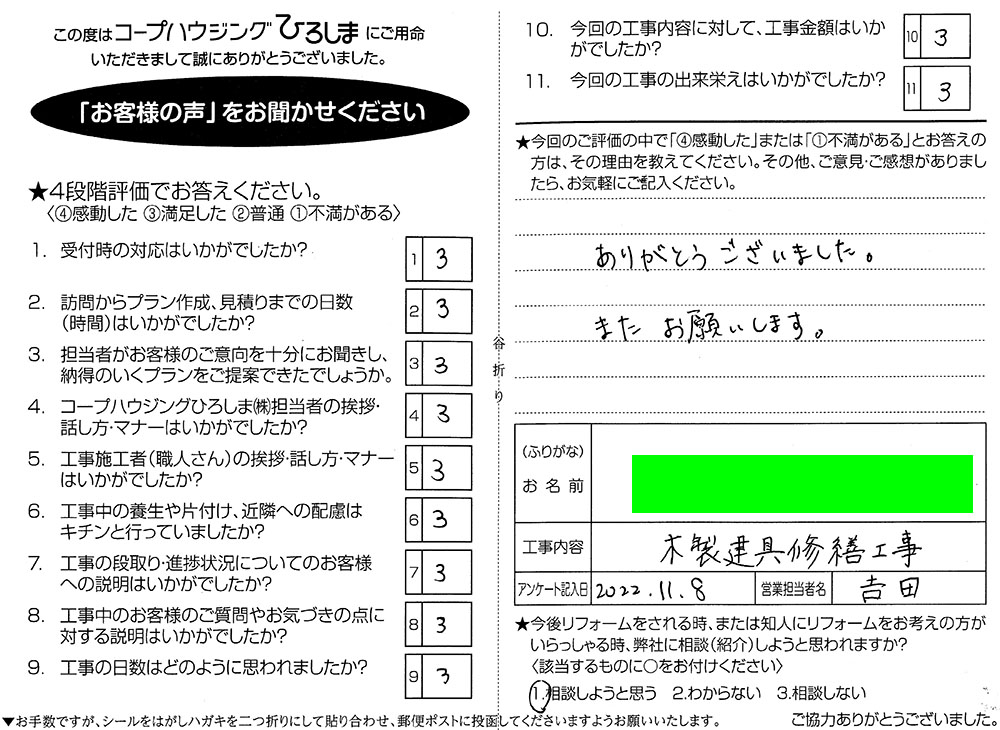 この度はコープハウジングひろしまにご用命
いただきまして誠にありがとうございました。
「お客様の声」をお聞かせください
★4段階評価でお答えください。
〈④感動した ③満足した ②普通 ①不満がある〉
1. 受付時の対応はいかがでしたか?
1 3
2. 訪問からプラン作成、見積りまでの日数
(時間)はいかがでしたか?
2 3
3. 担当者がお客様のご意向を十分にお聞きし、
納得のいくプランをご提案できたでしょうか。
3 3
4. コープハウジングひろしま㈱担当者の挨拶・
話し方・マナーはいかがでしたか?
4 3
5. 工事施工者(職人さん)の挨拶・話し方・マナー
はいかがでしたか?
5 3
6. 工事中の養生や片付け、近隣への配慮は
キチンと行っていましたか?
6 3
7. 工事の段取り・進捗状況についてのお客様
への説明はいかがでしたか?
7 3
8. 工事中のお客様のご質問やお気づきの点に
対する説明はいかがでしたか?
8 3
9. 工事の日数はどのように思われましたか?
9 3
谷折り
10. 今回の工事内容に対して、工事金額はいか
がでしたか?
10 3
11. 今回の工事の出来栄えはいかがでしたか?
11 3
★今回のご評価の中で「④感動した」または「①不満がある」とお答えの
方は、その理由を教えてください。その他、ご意見・ご感想がありまし
たら、お気軽にご記入ください。
ありがとうございました。
また お願いします。
(ふりがな)
お名前
工事内容 木製建具修繕工事
アンケート記入日 2022.11.8 営業担当者名 吉田
★今後リフォームをされる時、または知人にリフォームをお考えの方が
いらっしゃる時、弊社に相談(紹介)しようと思われますか?
〈該当するものに○をお付けください〉
1.相談しようと思う 2.わからない 3.相談しない
▼お手数ですが、シールをはがしハガキを二つ折りにして貼り合わせ、郵便ポストに投函してくださいますようお願いいたします。
ご協力ありがとうございました。